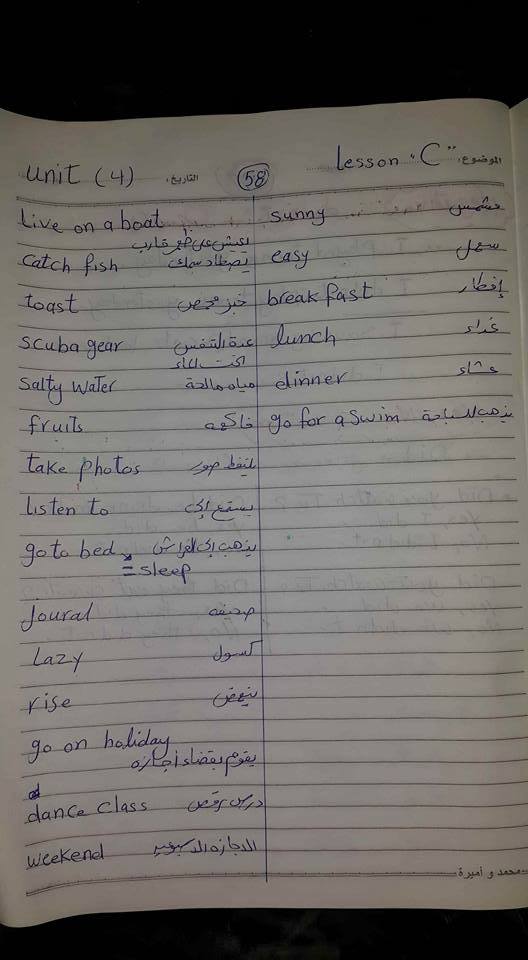 unit (4) التاريخ: 58 lesson "C" الموضوع:
Live on a boat
يعيش على ظهر قارب
catch fish يصطاد سمك
toast خبز محمص
scuba gear عدة التنفس
تحت الماء
salty water مياه مالحة
fruits فاكهه
take photos يلتقط صور
listen to يستمع إلى
go to bed يذهب إلى الفراش
= sleep
Joural صحيفه
Lazy كسول
rise ينهض
go on holiday
يقوم بقضاء أجازه
dance class درس رقص
weekend الاجازه الاسبوعيه
sunny مشمس
easy سهل
breakfast إفطار
lunch غداء
dinner عشاء
go for a swim يذهب للسباحة
محمد و أميرة